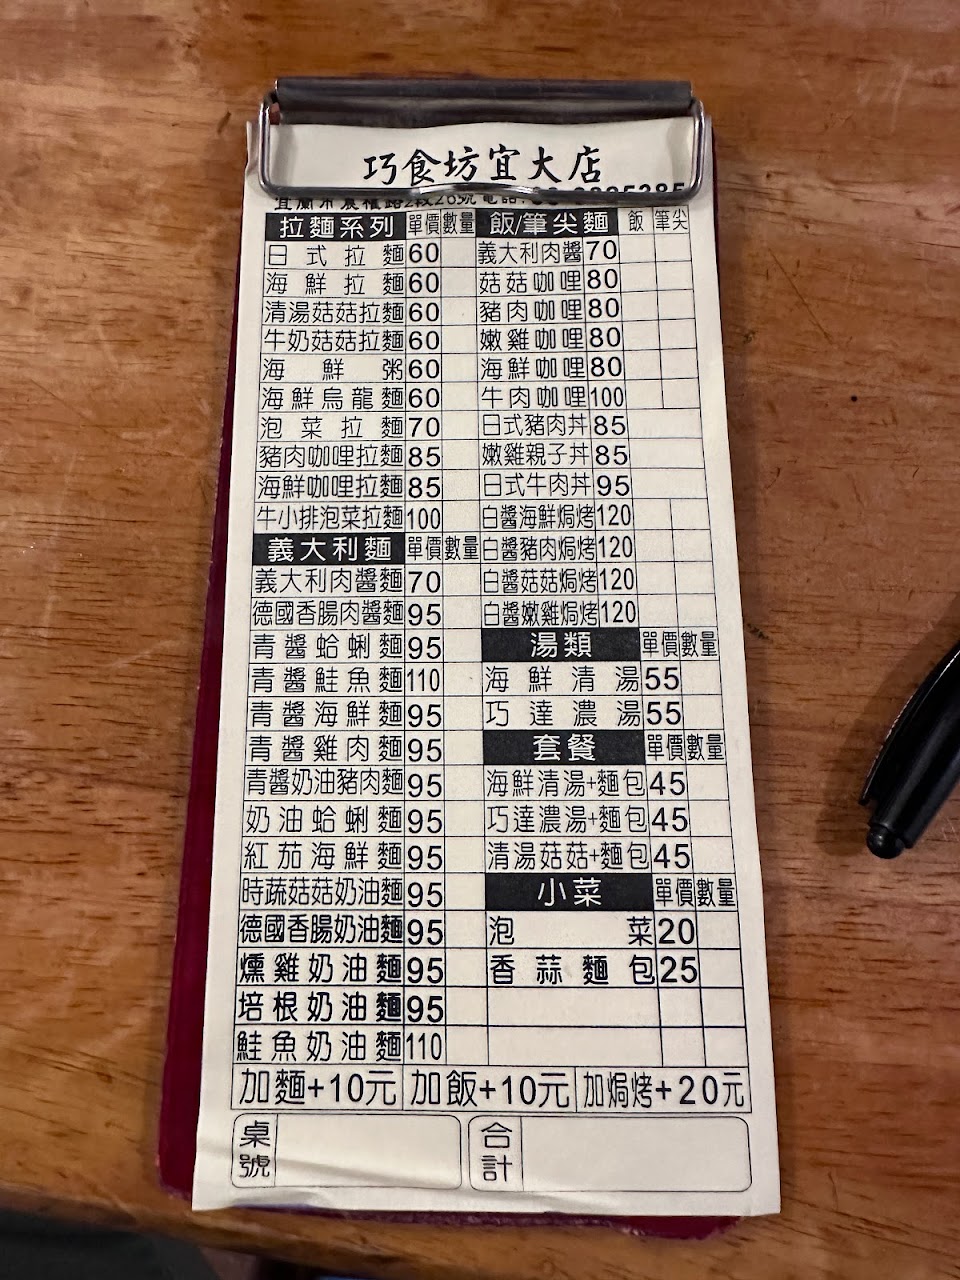 巧食坊宜大店
拉麵系列 單價 數量
日式拉麵 60
海鮮拉麵 60
清湯菇菇拉麵 60
牛奶菇菇拉麵 60
海鮮粥 60
海鮮烏龍麵 60
泡菜拉麵 70
豬肉咖哩拉麵 85
海鮮咖哩拉麵 85
牛小排泡菜拉麵 100
義大利麵 單價 數量
義大利肉醬麵 70
德國香腸肉醬麵 95
青醬蛤蜊麵 95
青醬鮭魚麵 110
青醬海鮮麵 95
青醬雞肉麵 95
青醬奶油豬肉麵 95
奶油蛤蜊麵 95
紅茄海鮮麵 95
時蔬菇菇奶油麵 95
德國香腸奶油麵 95
燻雞奶油麵 95
培根奶油麵 95
鮭魚奶油麵 110
飯/筆尖麵 飯 筆尖
義大利肉醬 70
菇菇咖哩 80
豬肉咖哩 80
嫩雞咖哩 80
海鮮咖哩 80
牛肉咖哩 100
日式豬肉丼 85
嫩雞親子丼 85
日式牛肉丼 95
白醬海鮮焗烤 120
白醬豬肉焗烤 120
白醬菇菇焗烤 120
白醬嫩雞焗烤 120
湯類 單價 數量
海鮮清湯 55
巧達濃湯 55
套餐 單價 數量
海鮮清湯+麵包 45
巧達濃湯+麵包 45
清湯菇菇+麵包 45
小菜 單價 數量
泡菜 20
香蒜麵包 25
加麵+10元 加飯+10元 加焗烤+20元
桌號 合計